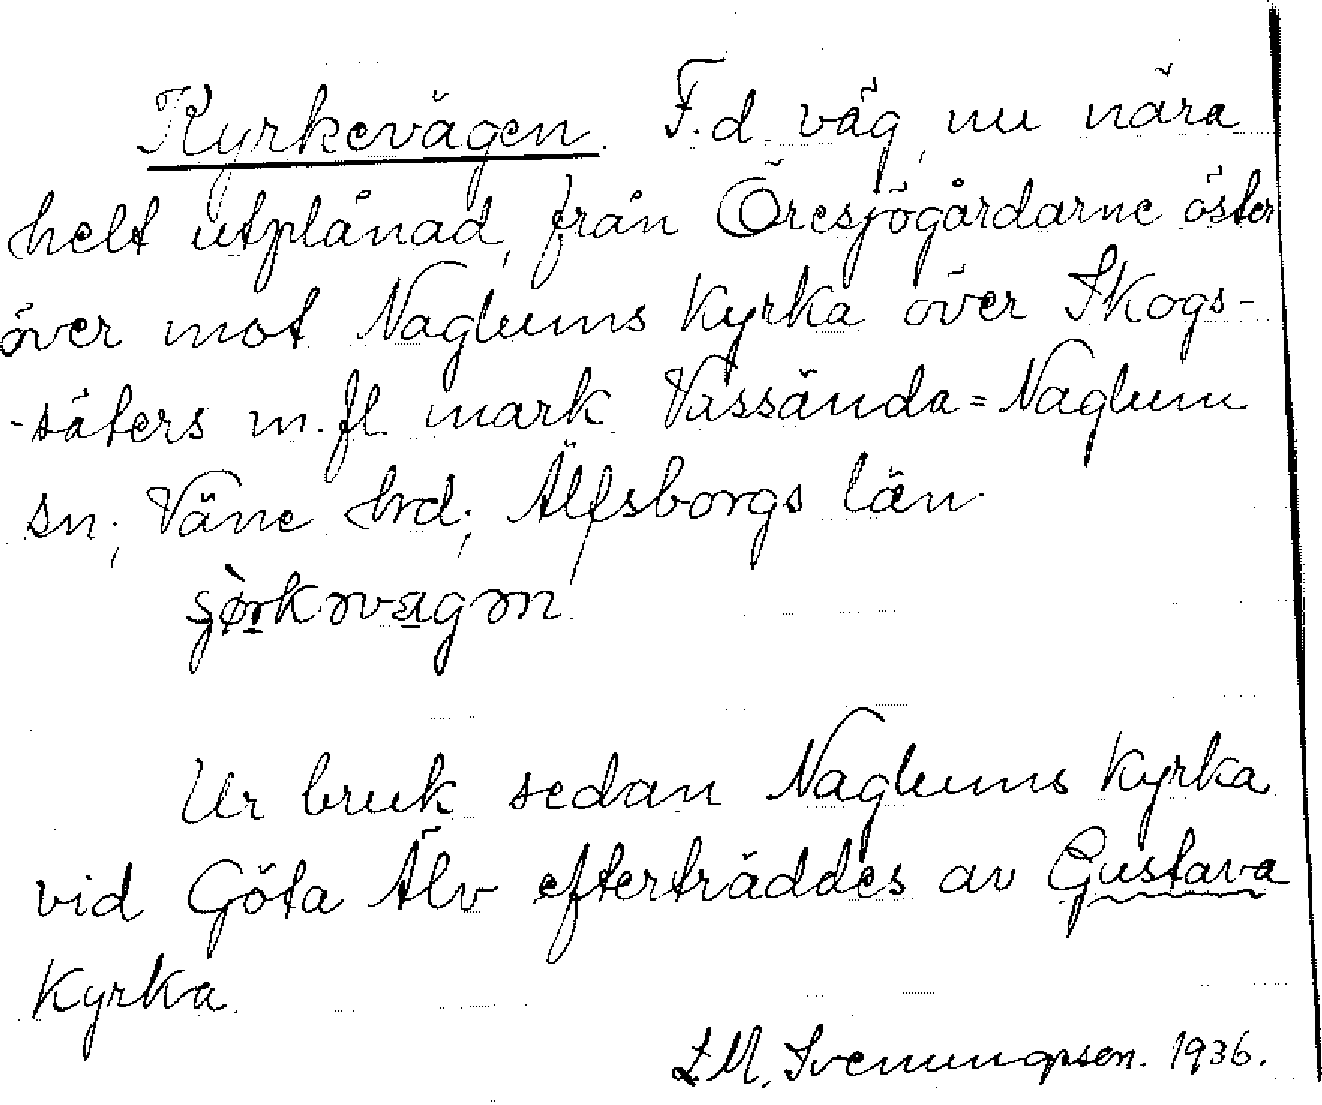 Kyrkevägen. F.d. väg, nu nära
helt utplånad, från Öresjögårdarne öster
över mot Naglums Kyrka över Skogs-
-säters m.fl. mark Vassända=Naglum
sn; Väne hrd; Älfsborgs län.
Ur bruk sedan Naglums Kyrka
vid Göta Älv efterträddes av Gustava
Kyrka.
1936.